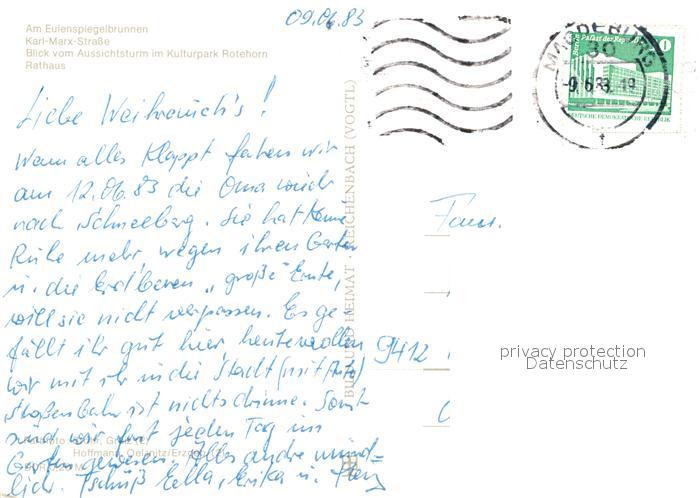 Am Eulenspiegelbrunnen
Karl-Marx-Straße
Blick vom Aussichtsturm im Kulturpark Rotehorn
Rathaus
09.06.83
MAGDEBURG
30
-9.6.83.-19
Berlin Palast der Republik
1
DEUTSCHE DEMOKRATISCHE REPUBLIK
Liebe Weihrauch's!
Wenn alles klappt fahren wir
am 12.06.83 die Oma wieder
nach Schneeberg. Sie hat keine
Ruhe mehr, wegen ihren Garten
u. die Erdbeeren „große" Ernte,
will sie nicht verpassen. Es ge-
fällt ihr gut hier, heute wollen
wir mit ihr in die Stadt (mit Auto)
Straßenbahn ist nichts drinne. Sonst
sind wir fast jeden Tag im
Garten gewesen. Alles andre münd-
lich. Tschüß Ella, Erika u.
Fam.
9412
BILD UND HEIMAT · REICHENBACH (VOGTL)
privacy protection
Datenschutz